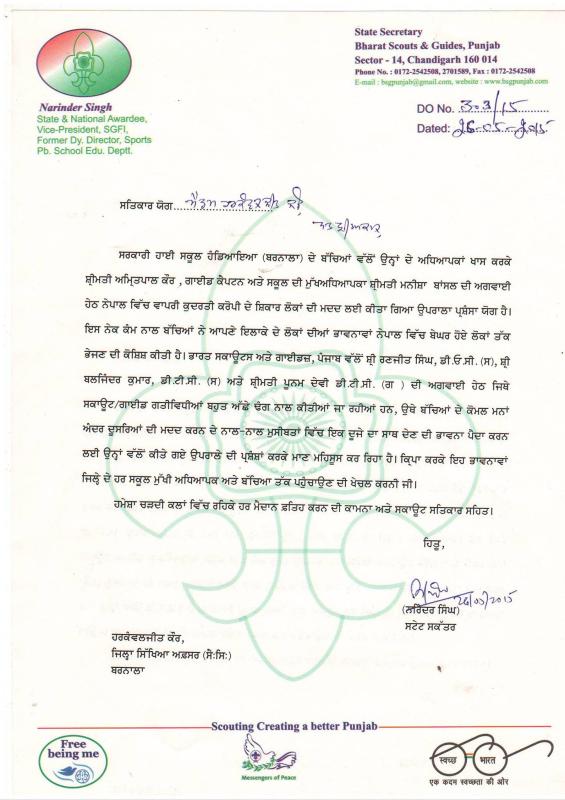 State Secretary
Bharat Scouts & Guides, Punjab
Sector - 14, Chandigarh 160 014
Phone No. : 0172-2542508, 2701589, Fax : 0172-2542508
E-mail : bsgpunjab@gmail.com, website : www.bsgpunjab.com
Narinder Singh
State & National Awardee,
Vice-President, SGFI,
Former Dy. Director, Sports
Pb. School Edu. Deptt.
DO No. 303/15
Dated: 26-05-2015
ਸਤਿਕਾਰ ਯੋਗ
ਸਰਕਾਰੀ ਹਾਈ ਸਕੂਲ ਹੰਡਿਆਇਆ (ਬਰਨਾਲਾ) ਦੇ ਬੱਚਿਆਂ ਵੱਲੋਂ ਉਨ੍ਹਾਂ ਦੇ ਅਧਿਆਪਕਾਂ ਖਾਸ ਕਰਕੇ
ਸ਼੍ਰੀਮਤੀ ਅਮ੍ਰਿਤਪਾਲ ਕੌਰ , ਗਾਈਡ ਕੈਪਟਨ ਅਤੇ ਸਕੂਲ ਦੀ ਮੁੱਖਅਧਿਆਪਕਾ ਸ਼੍ਰੀਮਤੀ ਮਨੀਸ਼ਾ ਬਾਂਸਲ ਦੀ ਅਗਵਾਈ
ਹੇਠ ਨੇਪਾਲ ਵਿੱਚ ਵਾਪਰੀ ਕੁਦਰਤੀ ਕਰੋਪੀ ਦੇ ਸ਼ਿਕਾਰ ਲੋਕਾਂ ਦੀ ਮਦਦ ਲਈ ਕੀਤਾ ਗਿਆ ਉਪਰਾਲਾ ਪ੍ਰਸ਼ੰਸਾ ਯੋਗ ਹੈ।
ਇਸ ਨੇਕ ਕੰਮ ਨਾਲ ਬੱਚਿਆਂ ਨੇ ਆਪਣੇ ਇਲਾਕੇ ਦੇ ਲੋਕਾਂ ਦੀਆਂ ਭਾਵਨਾਵਾਂ ਨੇਪਾਲ ਵਿੱਚ ਬੇਘਰ ਹੋਏ ਲੋਕਾਂ ਤੱਕ
ਭੇਜਣ ਦੀ ਕੋਸ਼ਿਸ਼ ਕੀਤੀ ਹੈ। ਭਾਰਤ ਸਕਾਊਟਸ ਅਤੇ ਗਾਈਡਜ਼, ਪੰਜਾਬ ਵੱਲੋਂ ਸ਼੍ਰੀ ਰਣਜੀਤ ਸਿੰਘ, ਡੀ.ਓ.ਸੀ. (ਸ), ਸ਼੍ਰੀ
ਬਲਜਿੰਦਰ ਕੁਮਾਰ, ਡੀ.ਟੀ.ਸੀ. (ਸ) ਅਤੇ ਸ਼੍ਰੀਮਤੀ ਪੂਨਮ ਦੇਵੀ ਡੀ.ਟੀ.ਸੀ. (ਗ ) ਦੀ ਅਗਵਾਈ ਹੇਠ ਜਿਥੇ
ਸਕਾਊਟ/ਗਾਈਡ ਗਤੀਵਿਧੀਆਂ ਬਹੁਤ ਅੱਛੇ ਢੰਗ ਨਾਲ ਕੀਤੀਆਂ ਜਾ ਰਹੀਆਂ ਹਨ, ਉਥੇ ਬੱਚਿਆਂ ਦੇ ਕੋਮਲ ਮਨਾਂ
ਅੰਦਰ ਦੂਸਰਿਆਂ ਦੀ ਮਦਦ ਕਰਨ ਦੇ ਨਾਲ-ਨਾਲ ਮੁਸੀਬਤਾਂ ਵਿੱਚ ਇਕ ਦੂਜੇ ਦਾ ਸਾਥ ਦੇਣ ਦੀ ਭਾਵਨਾ ਪੈਦਾ ਕਰਨ
ਲਈ ਉਨ੍ਹਾਂ ਵੱਲੋਂ ਕੀਤੇ ਗਏ ਉਪਰਾਲੇ ਦੀ ਪ੍ਰਸ਼ੰਸ਼ਾ ਕਰਕੇ ਮਾਣ ਮਹਿਸੂਸ ਕਰ ਰਿਹਾ ਹੈ। ਕ੍ਰਿਪਾ ਕਰਕੇ ਇਹ ਭਾਵਨਾਵਾਂ
ਜਿਲ੍ਹੇ ਦੇ ਹਰ ਸਕੂਲ ਮੁੱਖੀ ਅਧਿਆਪਕ ਅਤੇ ਬੱਚਿਆ ਤੱਕ ਪਹੁੰਚਾਉਣ ਦੀ ਖੇਚਲ ਕਰਨੀ ਜੀ।
ਹਮੇਸ਼ਾ ਚੜਦੀ ਕਲਾਂ ਵਿੱਚ ਰਹਿਕੇ ਹਰ ਮੈਦਾਨ ਫ਼ਤਿਹ ਕਰਨ ਦੀ ਕਾਮਨਾ ਅਤੇ ਸਕਾਊਟ ਸਤਿਕਾਰ ਸਹਿਤ।
ਹਿਤੂ,
26/05/2015
(ਨਰਿੰਦਰ ਸਿੰਘ)
ਸਟੇਟ ਸਕੱਤਰ
ਹਰਕੰਵਲਜੀਤ ਕੌਰ,
ਜਿਲ੍ਹਾ ਸਿੱਖਿਆ ਅਫ਼ਸਰ (ਸੈ:ਸਿ:)
ਬਰਨਾਲਾ
Scouting Creating a better Punjab
Free
being me
Messengers of Peace
स्वच्छ भारत
एक कदम स्वच्छता की ओर